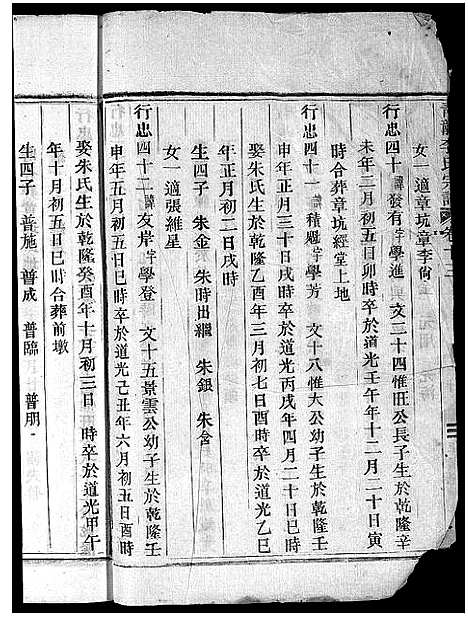 女一適章坑章李尙
行忠四十諱發有字學進 文二十四惟旺公長子生於乾隆辛
未年二月初五日卯時卒於道光壬午年十二月二十日寅
時合葬章坑經堂上地
行忠四十一諱積 字學芳 文十八惟大公幼子生於乾隆壬
申年正月三十日戌時卒於道光丙戌年四月二十日巳時
娶朱氏生於乾隆乙酉年三月初七日酉時卒於道光乙巳
年正月初二日戌時
生四子 朱金 朱時出繼 朱銀 朱
女一適張維星
行忠四十二諱友岸字學登 文十五景雲公幼子生於乾隆壬
申年五月初五日巳時卒於道光己丑年六月初五日酉時
娶朱氏生於乾隆癸酉年十月初三日 時卒於道光甲午
年十月初五日巳時合葬前墩
生四子 普施 普成 普臨 普朋